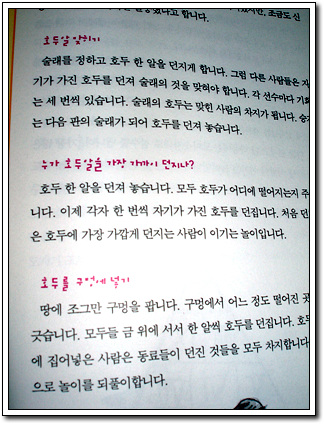 했다고 합니다. 조금도 신
호두알 맞히기
술래를 정하고 호두 한 알을 던지게 합니다. 그럼 다른 사람들은
기가 가진 호두를 던져 술래의 것을 맞혀야 합니다. 각 선수마다
는 세 번씩 있습니다. 술래의 호두는 맞힌 사람의 차지가 됩니다.
는 다음 판의 술래가 되어 호두를 던져 놓습니다.
누가 호두알을 가장 가까이 던지나?
호두 한 알을 던져 놓습니다. 모두 호두가 어디에 떨어지는지
니다. 이제 각자 한 번씩 자기가 가진 호두를 던집니다. 처음 던
은 호두에 가장 가깝게 던지는 사람이 이기는 놀이입니다.
호두를 구멍에 넣기
땅에 조그만 구멍을 팝니다. 구멍에서 어느 정도 떨어진
긋습니다. 모두들 금 위에 서서 한 알씩 호두를 던집니다. 호두
에 집어넣은 사람은 동료들이 던진 것들을 모두 차지합니다.
으로 놀이를 되풀이합니다.